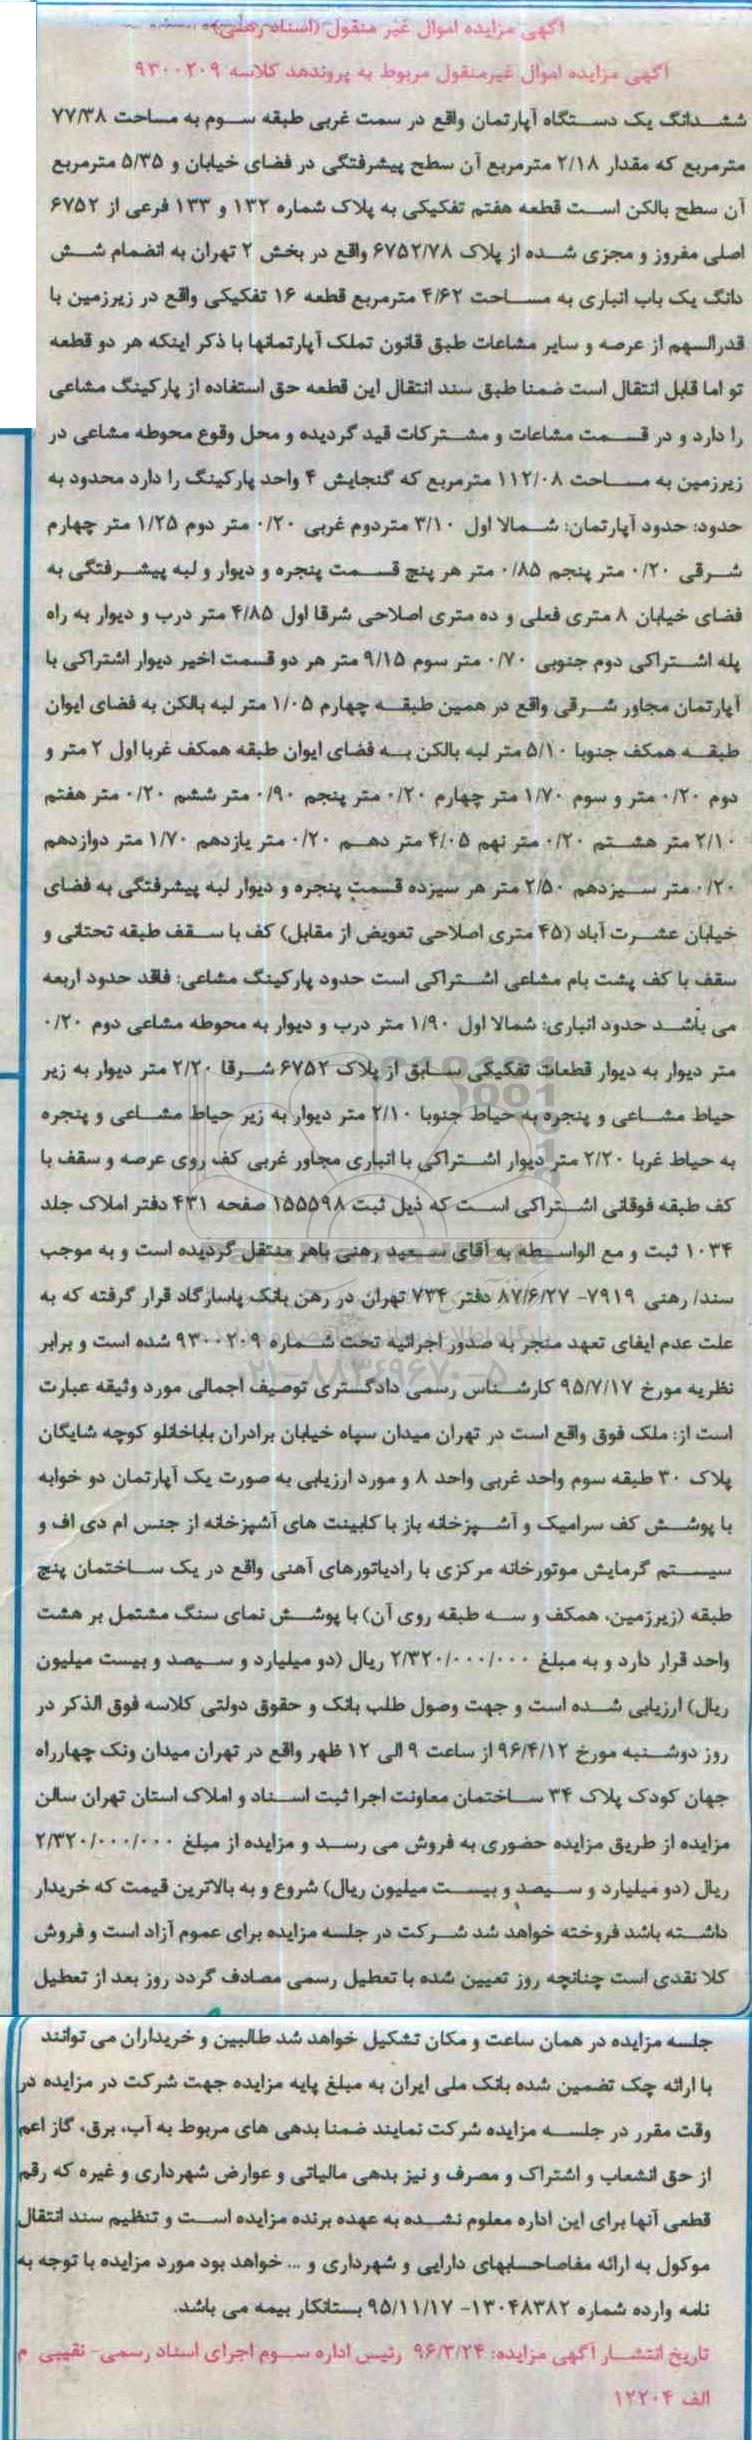 آگهی مزایده اموال غیر منقول (اسناد رهنی)
آگهی مزایده اموال غیرمنقول مربوط به پرونده‌هد کلاسه ۹۳۰۰۲۰۹
ششدانگ یک دستگاه آپارتمان واقع در سمت غربی طبقه سوم به مساحت ۷۷/۳۸
مترمربع که مقدار ۲/۱۸ مترمربع آن سطح پیشرفتگی در فضای خیابان و ۵/۳۵ مترمربع
آن سطح بالکن است قطعه هفتم تفکیکی به پلاک شماره ۱۳۲ و ۱۳۳ فرعی از ۶۷۵۲
اصلی مفروز و مجزی شده از پلاک ۶۷۵۲/۷۸ واقع در بخش ۲ تهران به انضمام شش
دانگ یک باب انباری به مساحت ۴/۶۲ مترمربع قطعه ۱۶ تفکیکی واقع در زیرزمین با
قدرالسهم از عرصه و سایر مشاعات طبق قانون تملک آپارتمانها با ذکر اینکه هر دو قطعه
تو اما قابل انتقال است ضمنا طبق سند انتقال این قطعه حق استفاده از پارکینگ مشاعی
را دارد و در قسمت مشاعات و مشترکات قید گردیده و محل وقوع محوطه مشاعی در
زیرزمین به مساحت ۱۱۲/۰۸ مترمربع که گنجایش ۴ واحد پارکینگ را دارد محدود به
حدود: حدود آپارتمان: شمالا اول ۳/۱۰ متردوم غربی ۰/۲۰ متر دوم ۱/۲۵ متر چهارم
شرقی ۰/۲۰ متر پنجم ۰/۸۵ متر هر پنج قسمت پنجره و دیوار و لبه پیشرفتگی به
فضای خیابان ۸ متری فعلی و ده متری اصلاحی شرقا اول ۴/۸۵ متر درب و دیوار به راه
پله اشتراکی دوم جنوبی ۰/۷۰ متر سوم ۹/۱۵ متر هر دو قسمت اخیر دیوار اشتراکی با
آپارتمان مجاور شرقی واقع در همین طبقه چهارم ۱/۰۵ متر لبه بالکن به فضای ایوان
طبقه همکف جنوبا ۵/۱۰ متر لبه بالکن به فضای ایوان طبقه همکف غربا اول ۲ متر و
دوم ۰/۲۰ متر و سوم ۱/۷۰ متر چهارم ۰/۲۰ متر پنجم ۰/۹۰ متر ششم ۰/۲۰ متر هفتم
۲/۱۰ متر هشتم ۰/۲۰ متر نهم ۴/۰۵ متر دهم ۰/۲۰ متر یازدهم ۱/۷۰ متر دوازدهم
۰/۲۰ متر سیزدهم ۲/۵۰ متر هر سیزده قسمت پنجره و دیوار لبه پیشرفتگی به فضای
خیابان عشرت آباد (۴۵ متری اصلاحی تعویض از مقابل) کف با سقف طبقه تحتانی و
سقف با کف پشت بام مشاعی اشتراکی است حدود پارکینگ مشاعی: فاقد حدود اربعه
می باشد حدود انباری: شمالا اول ۱/۹۰ متر درب و دیوار به محوطه مشاعی دوم ۰/۲۰
متر دیوار به دیوار قطعات تفکیکی سابق از پلاک ۶۷۵۲ شرقا ۲/۲۰ متر دیوار به زیر
حیاط مشاعی و پنجره به حیاط جنوبا ۲/۱۰ متر دیوار به زیر حیاط مشاعی و پنجره
به حیاط غربا ۲/۲۰ متر دیوار اشتراکی با انباری مجاور غربی کف روی عرصه و سقف با
کف طبقه فوقانی اشتراکی است که ذیل ثبت ۱۵۵۵۹۸ صفحه ۴۳۱ دفتر املاک جلد
۱۰۳۴ ثبت و مع الواسطه به آقای سعید رهنی باهر منتقل گردیده است و به موجب
سند/ رهنی ۷۹۱۹- ۸۷/۶/۲۷ دفتر ۷۳۴ تهران در رهن بانک پاسارگاد قرار گرفته که به
علت عدم ایفای تعهد منجر به صدور اجرائیه تحت شماره ۹۳۰۰۲۰۹ شده است و برابر
نظریه مورخ ۹۵/۷/۱۷ کارشناس رسمی دادگستری توصیف اجمالی مورد وثیقه عبارت
است از: ملک فوق واقع است در تهران میدان سپاه خیابان برادران باباخانلو کوچه شایگان
پلاک ۳۰ طبقه سوم واحد غربی واحد ۸ و مورد ارزیابی به صورت یک آپارتمان دو خوابه
با پوشش کف سرامیک و آشپزخانه باز با کابینت های آشپزخانه از جنس ام دی اف و
سیستم گرمایش موتورخانه مرکزی با رادیاتورهای آهنی واقع در یک ساختمان پنج
طبقه (زیرزمین، همکف و سه طبقه روی آن) با پوشش نمای سنگ مشتمل بر هشت
واحد قرار دارد و به مبلغ ۲/۳۲۰/۰۰۰/۰۰۰ ریال (دو میلیارد و سیصد و بیست میلیون
ریال) ارزیابی شده است و جهت وصول طلب بانک و حقوق دولتی کلاسه فوق الذکر در
روز دوشنبه مورخ ۹۶/۴/۱۲ از ساعت ۹ الی ۱۲ ظهر واقع در تهران میدان ونک چهارراه
جهان کودک پلاک ۳۴ ساختمان معاونت اجرا ثبت اسناد و املاک استان تهران سالن
مزایده از طریق مزایده حضوری به فروش می رسد و مزایده از مبلغ ۲/۳۲۰/۰۰۰/۰۰۰
ریال (دو میلیارد و سیصد و بیست میلیون ریال) شروع و به بالاترین قیمت که خریدار
داشته باشد فروخته خواهد شد شرکت در جلسه مزایده برای عموم آزاد است و فروش
کلا نقدی است چنانچه روز تعیین شده با تعطیل رسمی مصادف گردد روز بعد از تعطیل
جلسه مزایده در همان ساعت و مکان تشکیل خواهد شد طالبین و خریداران می توانند
با ارائه چک تضمین شده بانک ملی ایران به مبلغ پایه مزایده جهت شرکت در مزایده در
وقت مقرر در جلسه مزایده شرکت نمایند ضمنا بدهی های مربوط به آب، برق، گاز اعم
از حق انشعاب و اشتراک و مصرف و نیز بدهی مالیاتی و عوارض شهرداری و غیره که رقم
قطعی آنها برای این اداره معلوم نشده به عهده برنده مزایده است و تنظیم سند انتقال
موکول به ارائه مفاصاحسابهای دارایی و شهرداری و ... خواهد بود مورد مزایده با توجه به
نامه وارده شماره ۱۳۰۴۸۳۸۲- ۹۵/۱۱/۱۷ بستانکار بیمه می باشد.
تاریخ انتشار آگهی مزایده: ۹۶/۳/۲۴ رئیس اداره سوم اجرای اسناد رسمی- نقیبی م
الف ۱۲۲۰۴
ParsNamadData
۰۲۱-۸۸۳۴۹۶۷۰-۵